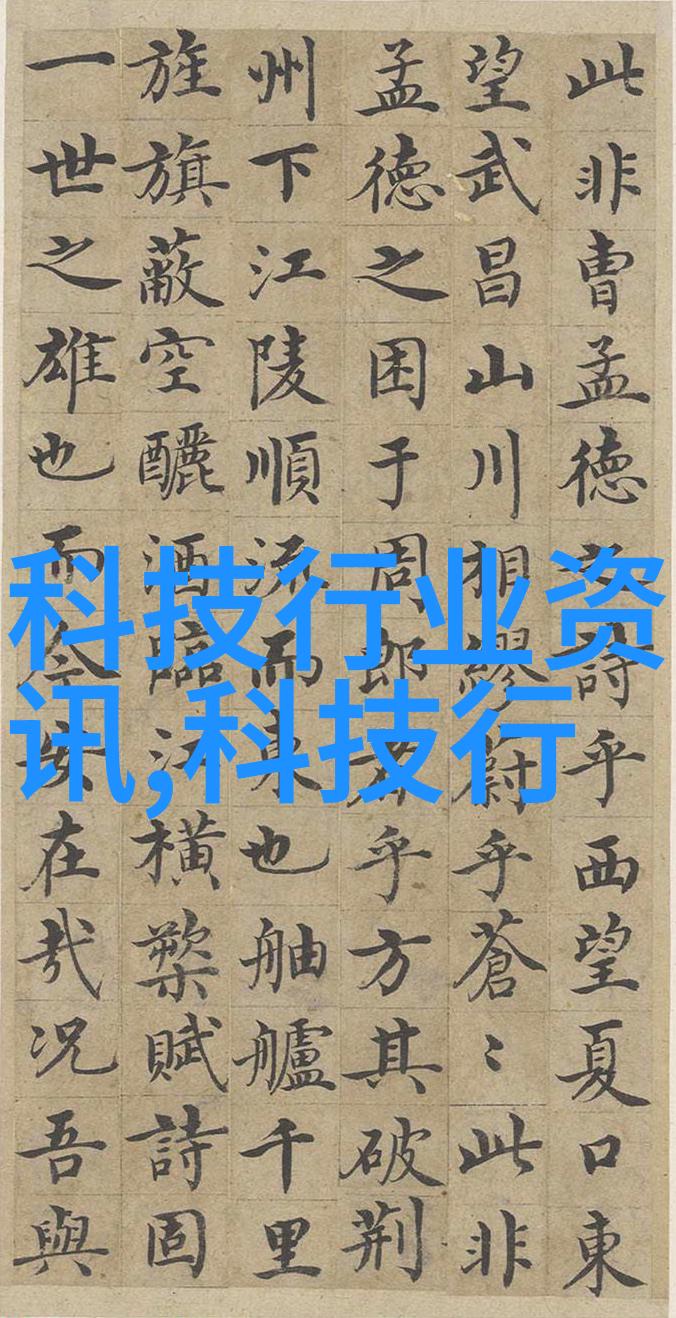 此非曹孟德之詩乎西望夏口東
望武昌山川相繆蔚乎蒼〻此非
孟德之困于周郎者乎方其破荊
州下江陵順流而東也舳艫千里
旌旗蔽空釃酒臨江橫槊賦詩固
一世之雄也而今安在哉况吾與
科技行业资
讯,科技行